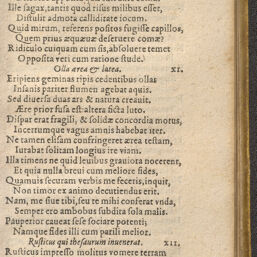 Ille sagax, tantis quod risus milibus esset,
Distulit admota calliditate iocum.
Quid mirum, referens positos fugisse capillos,
Quem prius æquæuæ deseruere comæ?
Ridiculo cuiquam cum sis, absoluere temet
Opposita veri cum ratione stude.
Olla ærea & lutea. XI.
Eripiens geminas ripis cedentibus ollas
Insanis pariter flumen agebat aquis.
Sed diuersa duas ars & natura creauit.
Aere prior fusa est: altera ficta luto.
Dispar erat fragili, & solidæ concordia motus,
Incertumque vagus amnis habebat iter.
Ne tamen elisam confringeret ærea testam,
Iurabat solitam longius ire viam.
Illa timens ne quid leuibus grauiora nocerent,
Et quia nulla breui cum meliore fides,
Quamuis securam verbis me feceris, inquit,
Non timor ex animo decutiendus erit.
Nam, me siue tibi, seu te mihi conferat vnda,
Semper ero ambobus subdita sola malis.
Pauperior caueat sese sociare potenti,
Namque fides illi cum parili melior.
Rusticus qui thesaurum inuenerat. XII.
Rusticus impresso molitus vomere terram